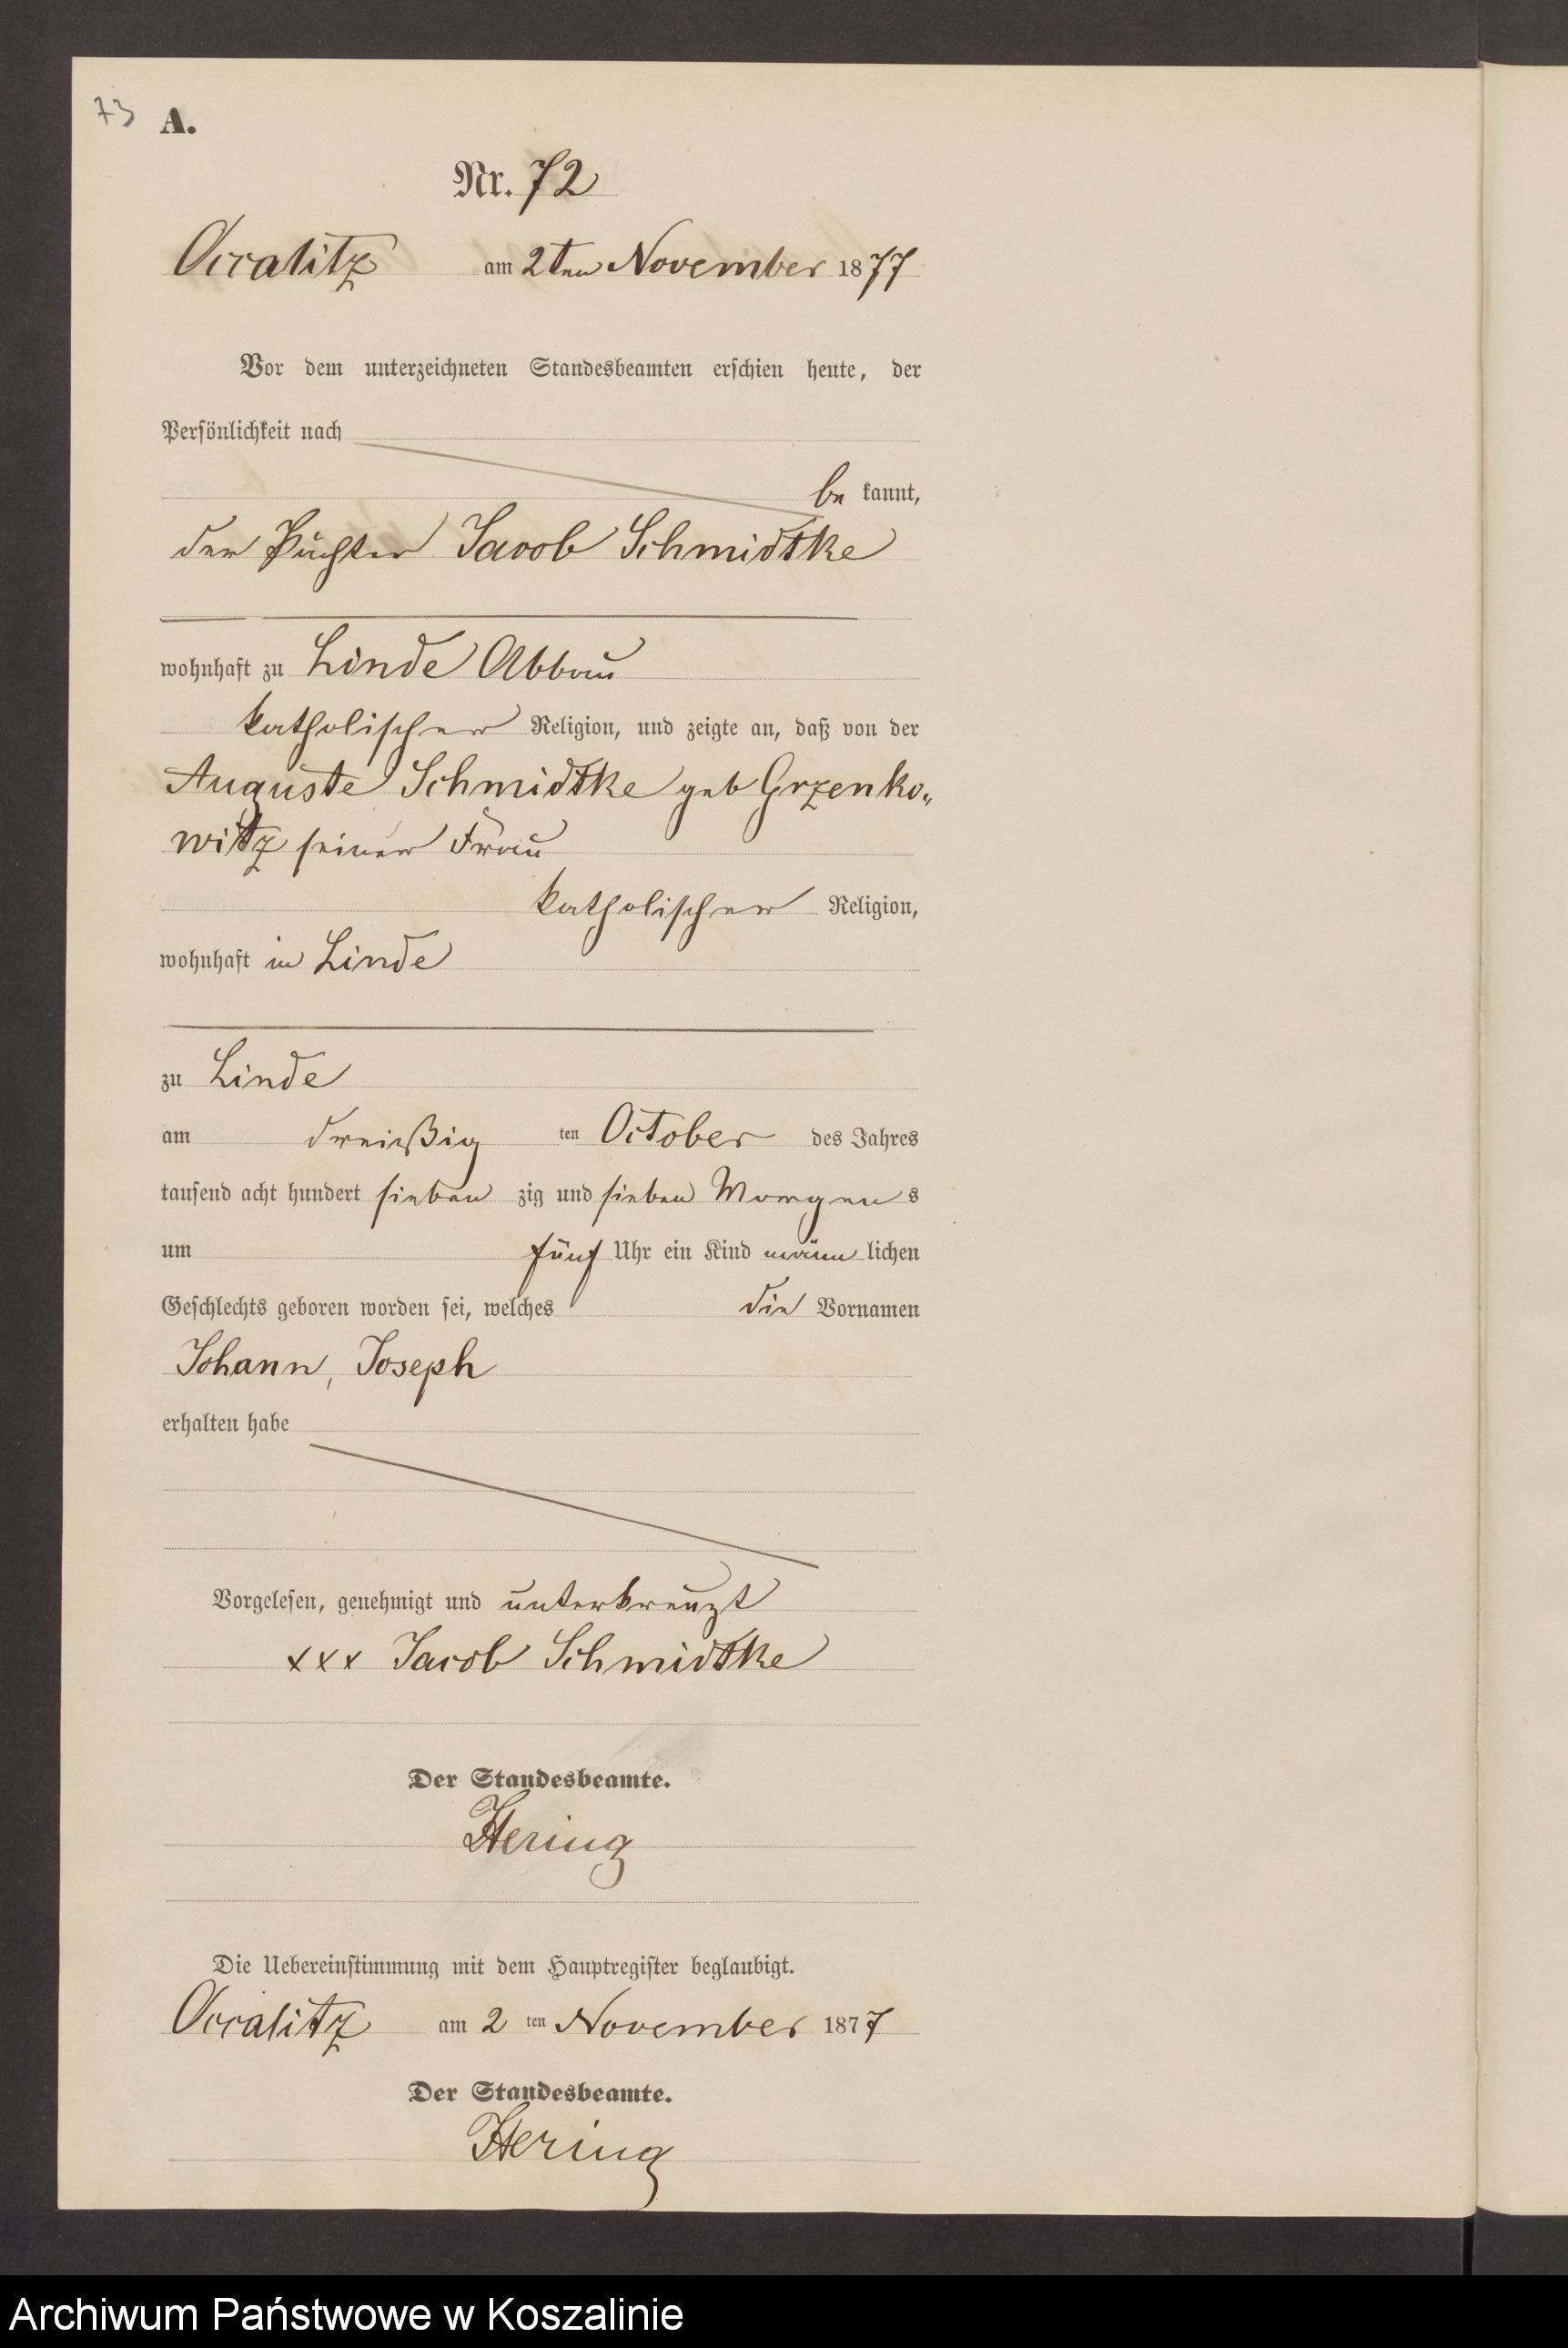 73 A.
Nr. 72
Occalitz am 2ten November 1877
Vor dem unterzeichneten Standesbeamten erschien heute, der
Persönlichkeit nach
be kannt,
der Pächter Jacob Schmidtke
wohnhaft zu Linde Abbau
katholischer Religion, und zeigte an, daß von der
Auguste Schmidtke geb Grzenko„
witz seiner Frau
katholischer Religion,
wohnhaft in Linde
zu Linde
am dreißig ten October des Jahres
tausend acht hundert sieben zig und sieben Morgen s
um fünf Uhr ein Kind männ lichen
Geschlechts geboren worden sei, welches die Vornamen
Johann, Joseph
erhalten habe
Vorgelesen, genehmigt und unterkreuzt
xxx Jacob Schmidtke
Der Standesbeamte.
Hering
Die Uebereinstimmung mit dem Hauptregister beglaubigt.
Occalitz am 2 ten November 1877
Der Standesbeamte.
Hering
Archiwum Państwowe w Koszalinie